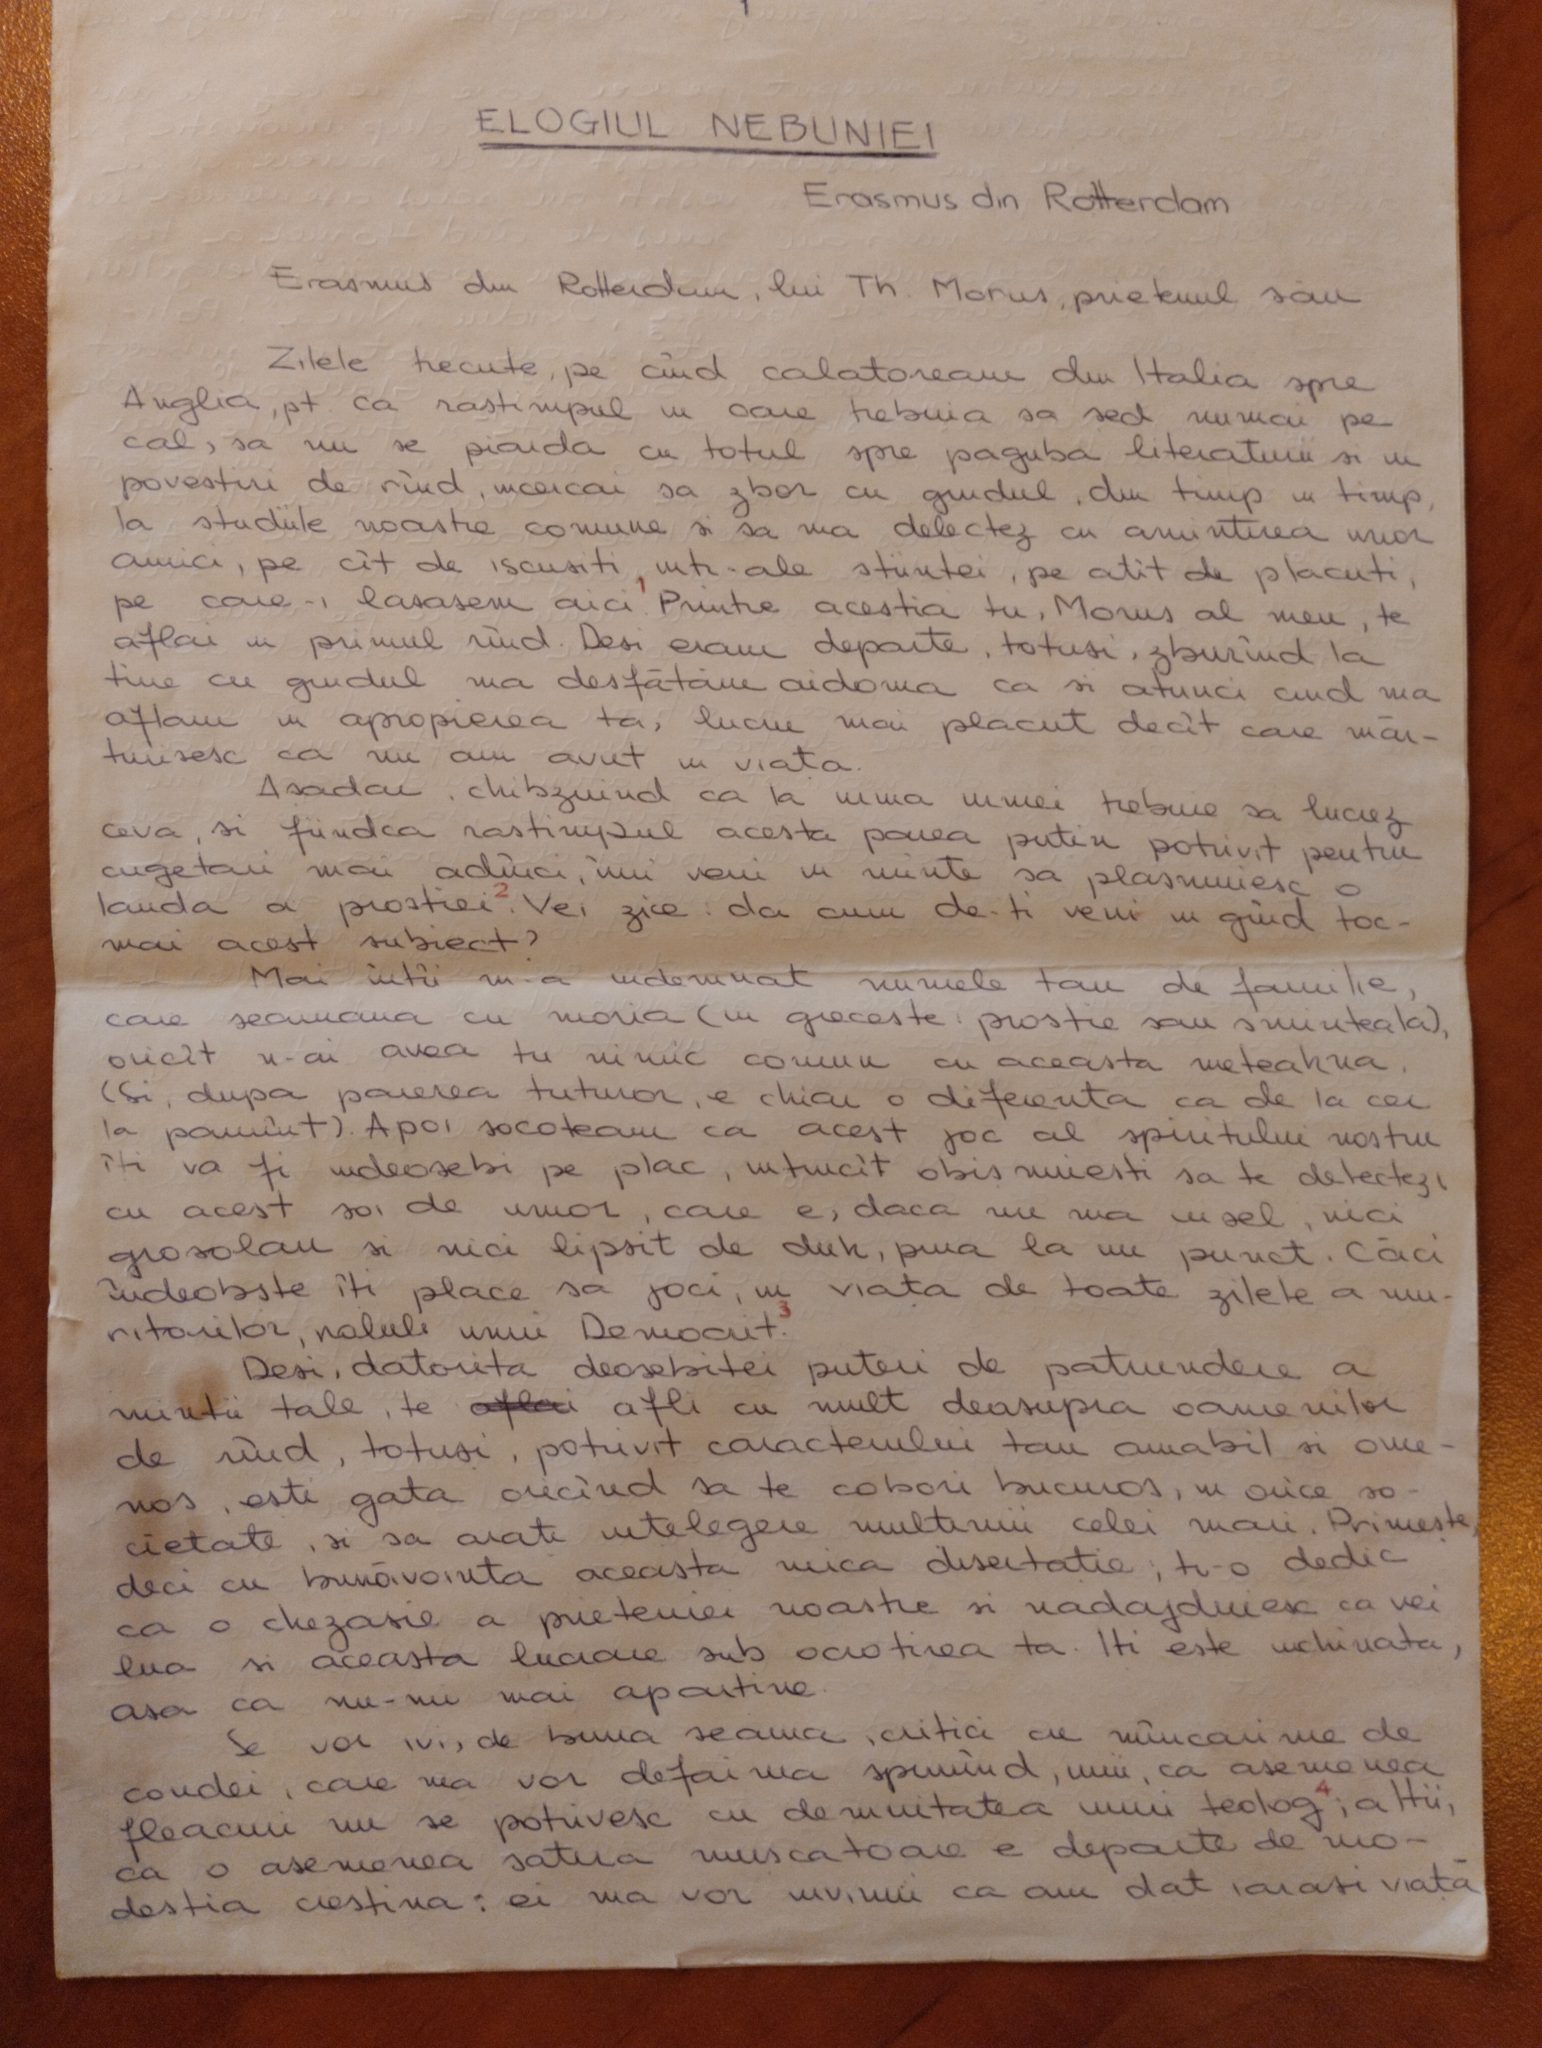 1
ELOGIUL NEBUNIEI
Erasmus din Rotterdam
Erasmus din Rotterdam, lui Th. Morus, prietenul său
Zilele trecute, pe cînd calatoream din Italia spre
Anglia, pt. ca rastimpul in care trebuia sa sed numai pe
cal, sa nu se piarda cu totul spre paguba literaturii si in
povestiri de rînd, incercai sa zbor cu gindul, din timp in timp,
la studiile noastre comune si sa ma delectez cu amintirea unor
amici, pe cît de iscusiti, intr-ale stiintei, pe atit de placuti,
pe care-i lasasem aici¹. Printre acestia tu, Morus al meu, te
aflai in primul rînd. Desi eram departe, totusi, zburînd la
tine cu gindul ma desfătăm aidoma ca si atunci cind ma
aflam in apropierea ta, lucru mai placut decît care măr-
turisesc ca nu am avut in viata.
Asadar, chibzuind ca la urma urmei trebuie sa lucrez
ceva, si fiindca rastimpul acesta parea putin potrivit pentru
cugetari mai adînci, îmi veni in minte sa plasmuiesc o
lauda a prostiei². Vei zice: da cum de-ti veni in gînd toc-
mai acest subiect?
Mai întîi m-a indemnat numele tau de familie,
care seamana cu moria (in greceste: prostie sau sminteala),
oricît n-ai avea tu nimic comun cu aceasta meteahna.
(Si, dupa parerea tuturor, e chiar o diferenta ca de la cer
la pamînt). Apoi socoteam ca acest joc al spiritului nostru
îti va fi indeosebi pe plac, intrucît obisnuiesti sa te delectezi
cu acest soi de umor, care e, daca nu ma insel, nici
grosolan si nici lipsit de duh, pina la un punct. Căci
îndeobste îti place sa joci, in viata de toate zilele a mu-
ritorilor, rolul unui Democrit³.
Desi, datorita deosebitei puteri de patrundere a
mintii tale, te aflai afli cu mult deasupra oamenilor
de rînd, totusi, potrivit caracterului tau amabil si ome-
nos, esti gata oricînd sa te cobori bucuros, in orice so-
cietate, si sa arati intelegere multimii celei mari. Primeste,
deci cu bunăvointa aceasta mica disertatie; ti-o dedic
ca o chezasie a prieteniei noastre si nadajduiesc ca vei
lua si aceasta lucrare sub ocrotirea ta. Iti este inchinata,
asa ca nu-mi mai apartine.
Se vor ivi, de buna seama, critici cu mîncarime de
condei, care ma vor defaima spunînd, unii, ca asemenea
fleacuri nu se potrivesc cu demnitatea unui teolog⁴; altii,
ca o asemenea satira muscatoare e departe de mo-
destia crestina: ei ma vor invinui ca am dat iarasi viață